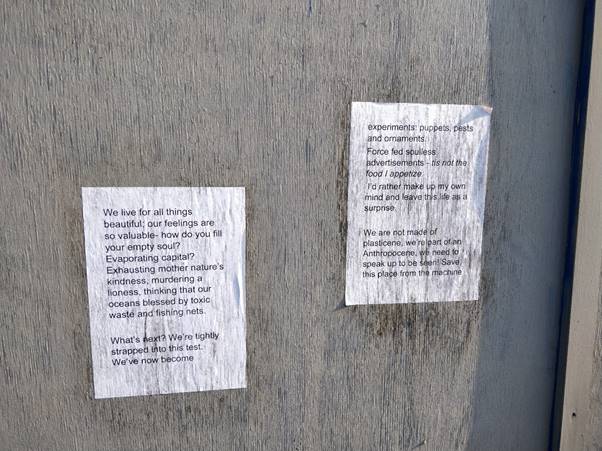 We live for all things
beautiful; our feelings are
so valuable- how do you fill
your empty soul?
Evaporating capital?
Exhausting mother nature's
kindness, murdering a
lioness, thinking that our
oceans blessed by toxic
waste and fishing nets.
What's next? We're tightly
strapped into this test.
We've now become
experiments: puppets, pests
and ornaments.
Force fed soulless
advertisements - tis not the
food I appetize
I'd rather make up my own
mind and leave this life as a
surprise.
We are not made of
plasticene, we're part of an
Anthropocene, we need to
speak up to be seen! Save
this place from the machine